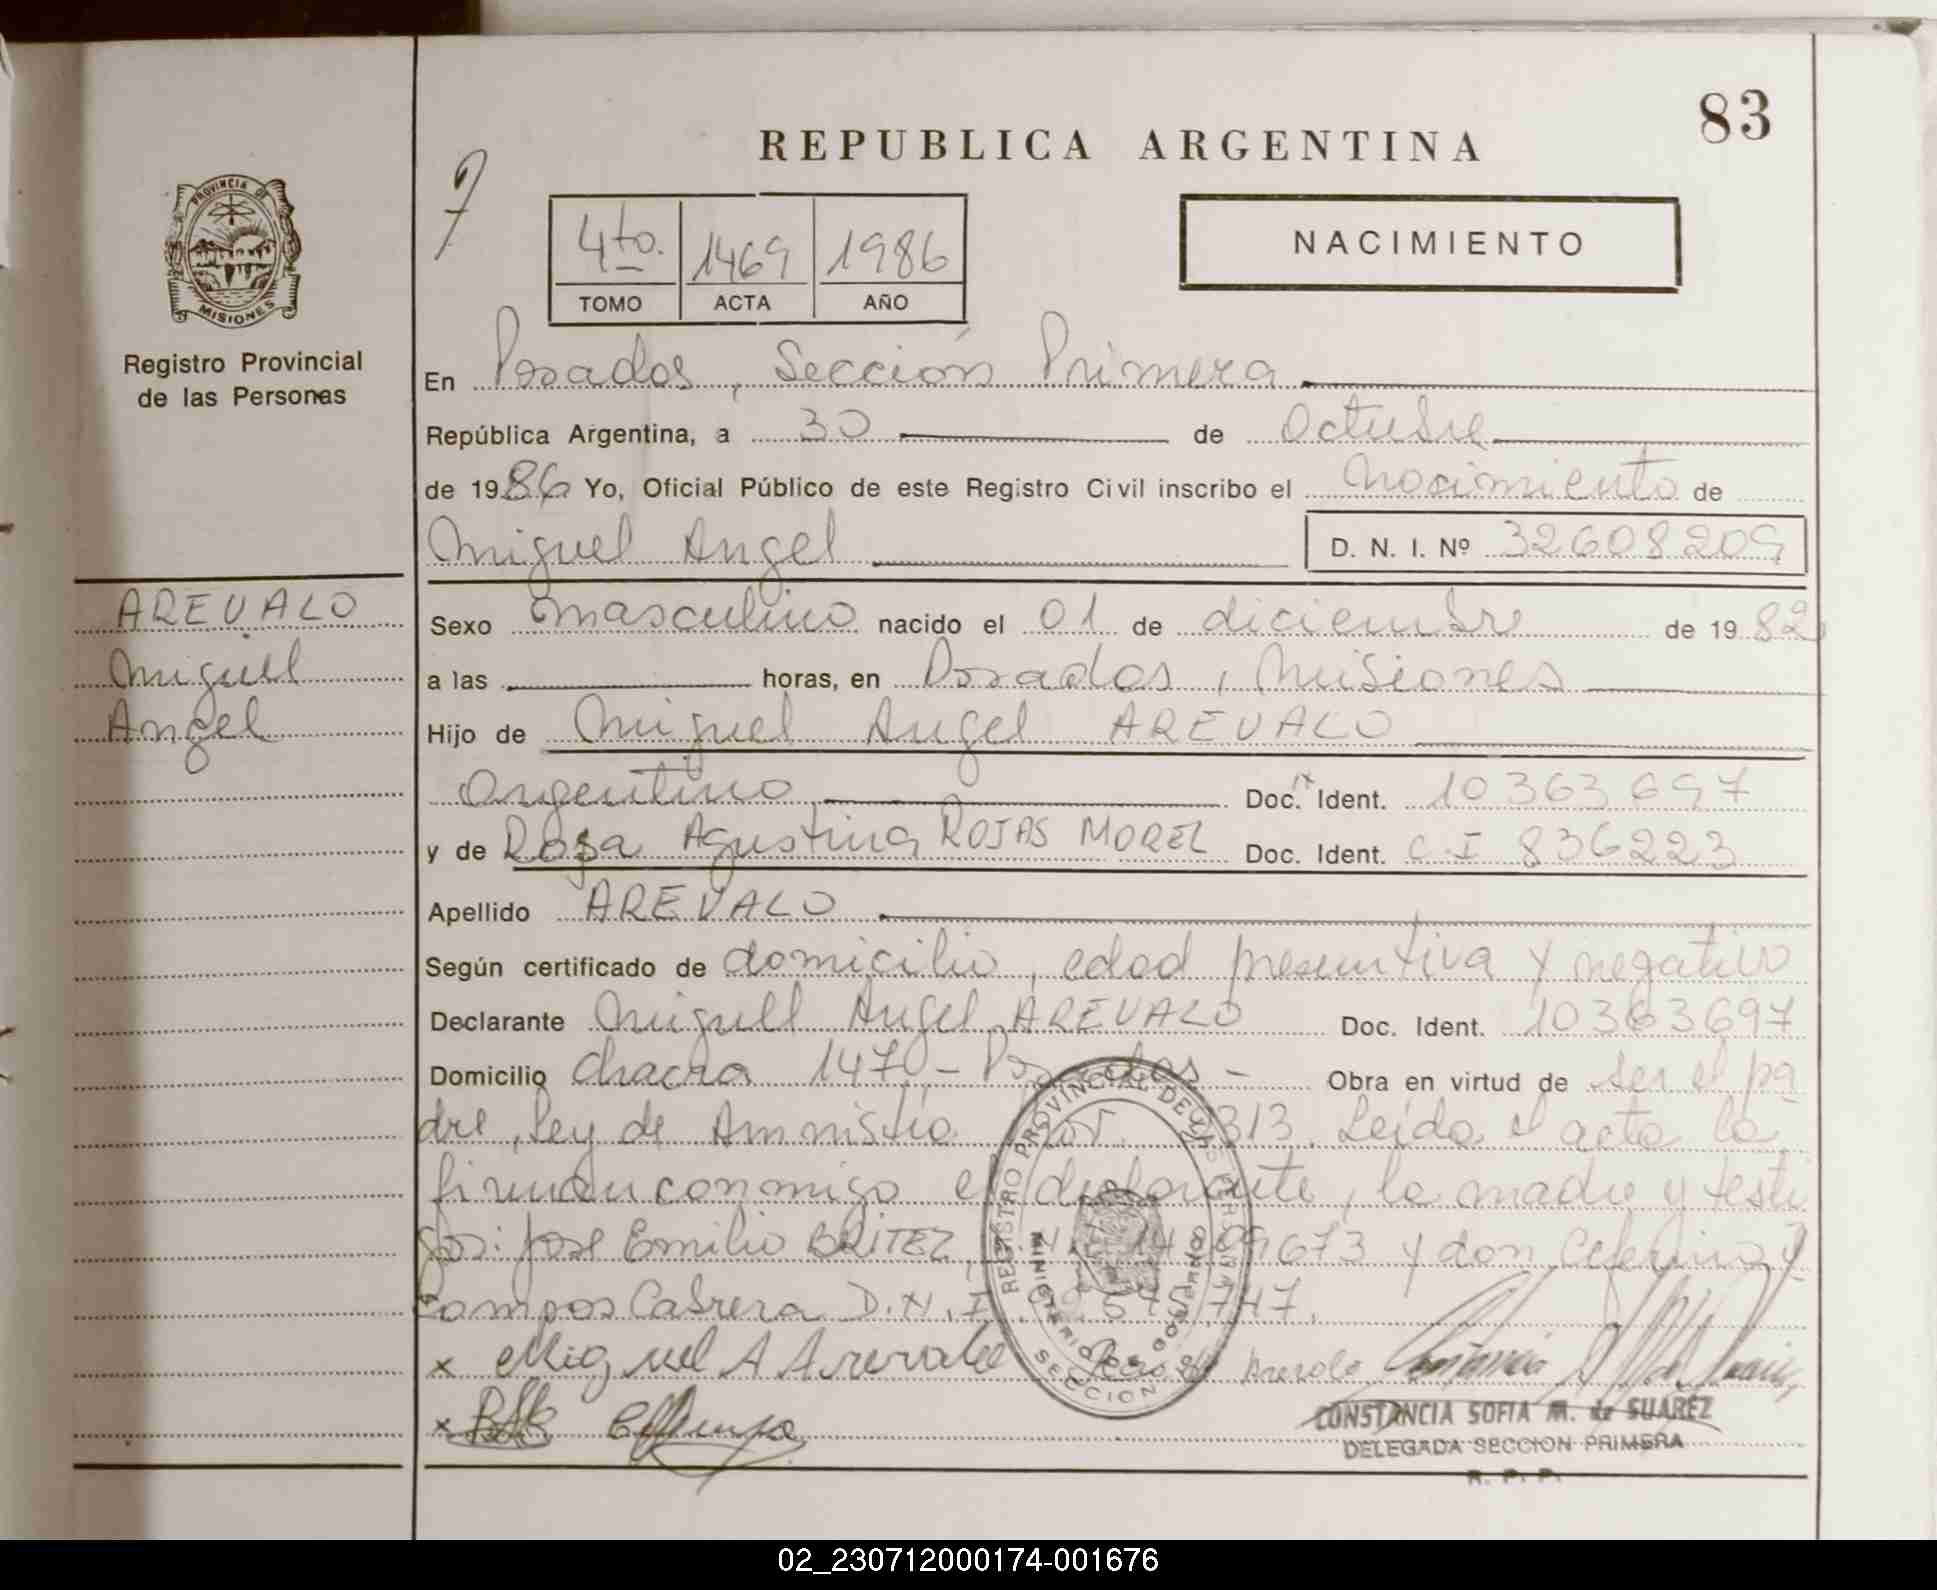 83
REPUBLICA ARGENTINA
PROVINCIA DE
MISIONES
Registro Provincial
de las Personas
4to. 1469 1986
TOMO ACTA AÑO
NACIMIENTO
En Posadas, Sección Primera
República Argentina, a 30 de Octubre
de 1986 Yo, Oficial Público de este Registro Civil inscribo el nacimiento de
Miguel Angel D. N. I. Nº 32608209
AREVALO
Miguel
Angel
Sexo masculino nacido el 01 de diciembre de 1982
a las horas, en Posadas, Misiones
Hijo de Miguel Angel AREVALO
Argentino Doc. Ident. 10363697
y de Rosa Agustina ROJAS MOREL Doc. Ident. C.I 836223
Apellido AREVALO
Según certificado de domicilio, edad presuntiva y negativo
Declarante Miguel Angel AREVALO Doc. Ident. 10363697
Domicilio chacra 147 - Posadas - Obra en virtud de ser el pa
dre, ley de Amnistía 313. Leída el acta la
firman conmigo el declarante, la madre y testi
gos: José Emilio BRITEZ, 09673 y don Ceferino
Campos Cabrera D.N.I 747.
x Miguel A Arevalo Arevalo
x
REGISTRO PROVINCIAL DE LAS PERSONAS
MINISTERIO DE GOBIERNO
SECCION
CONSTANCIA SOFIA M. de SUAREZ
DELEGADA SECCION PRIMERA
R. P. P.
02_230712000174-001676